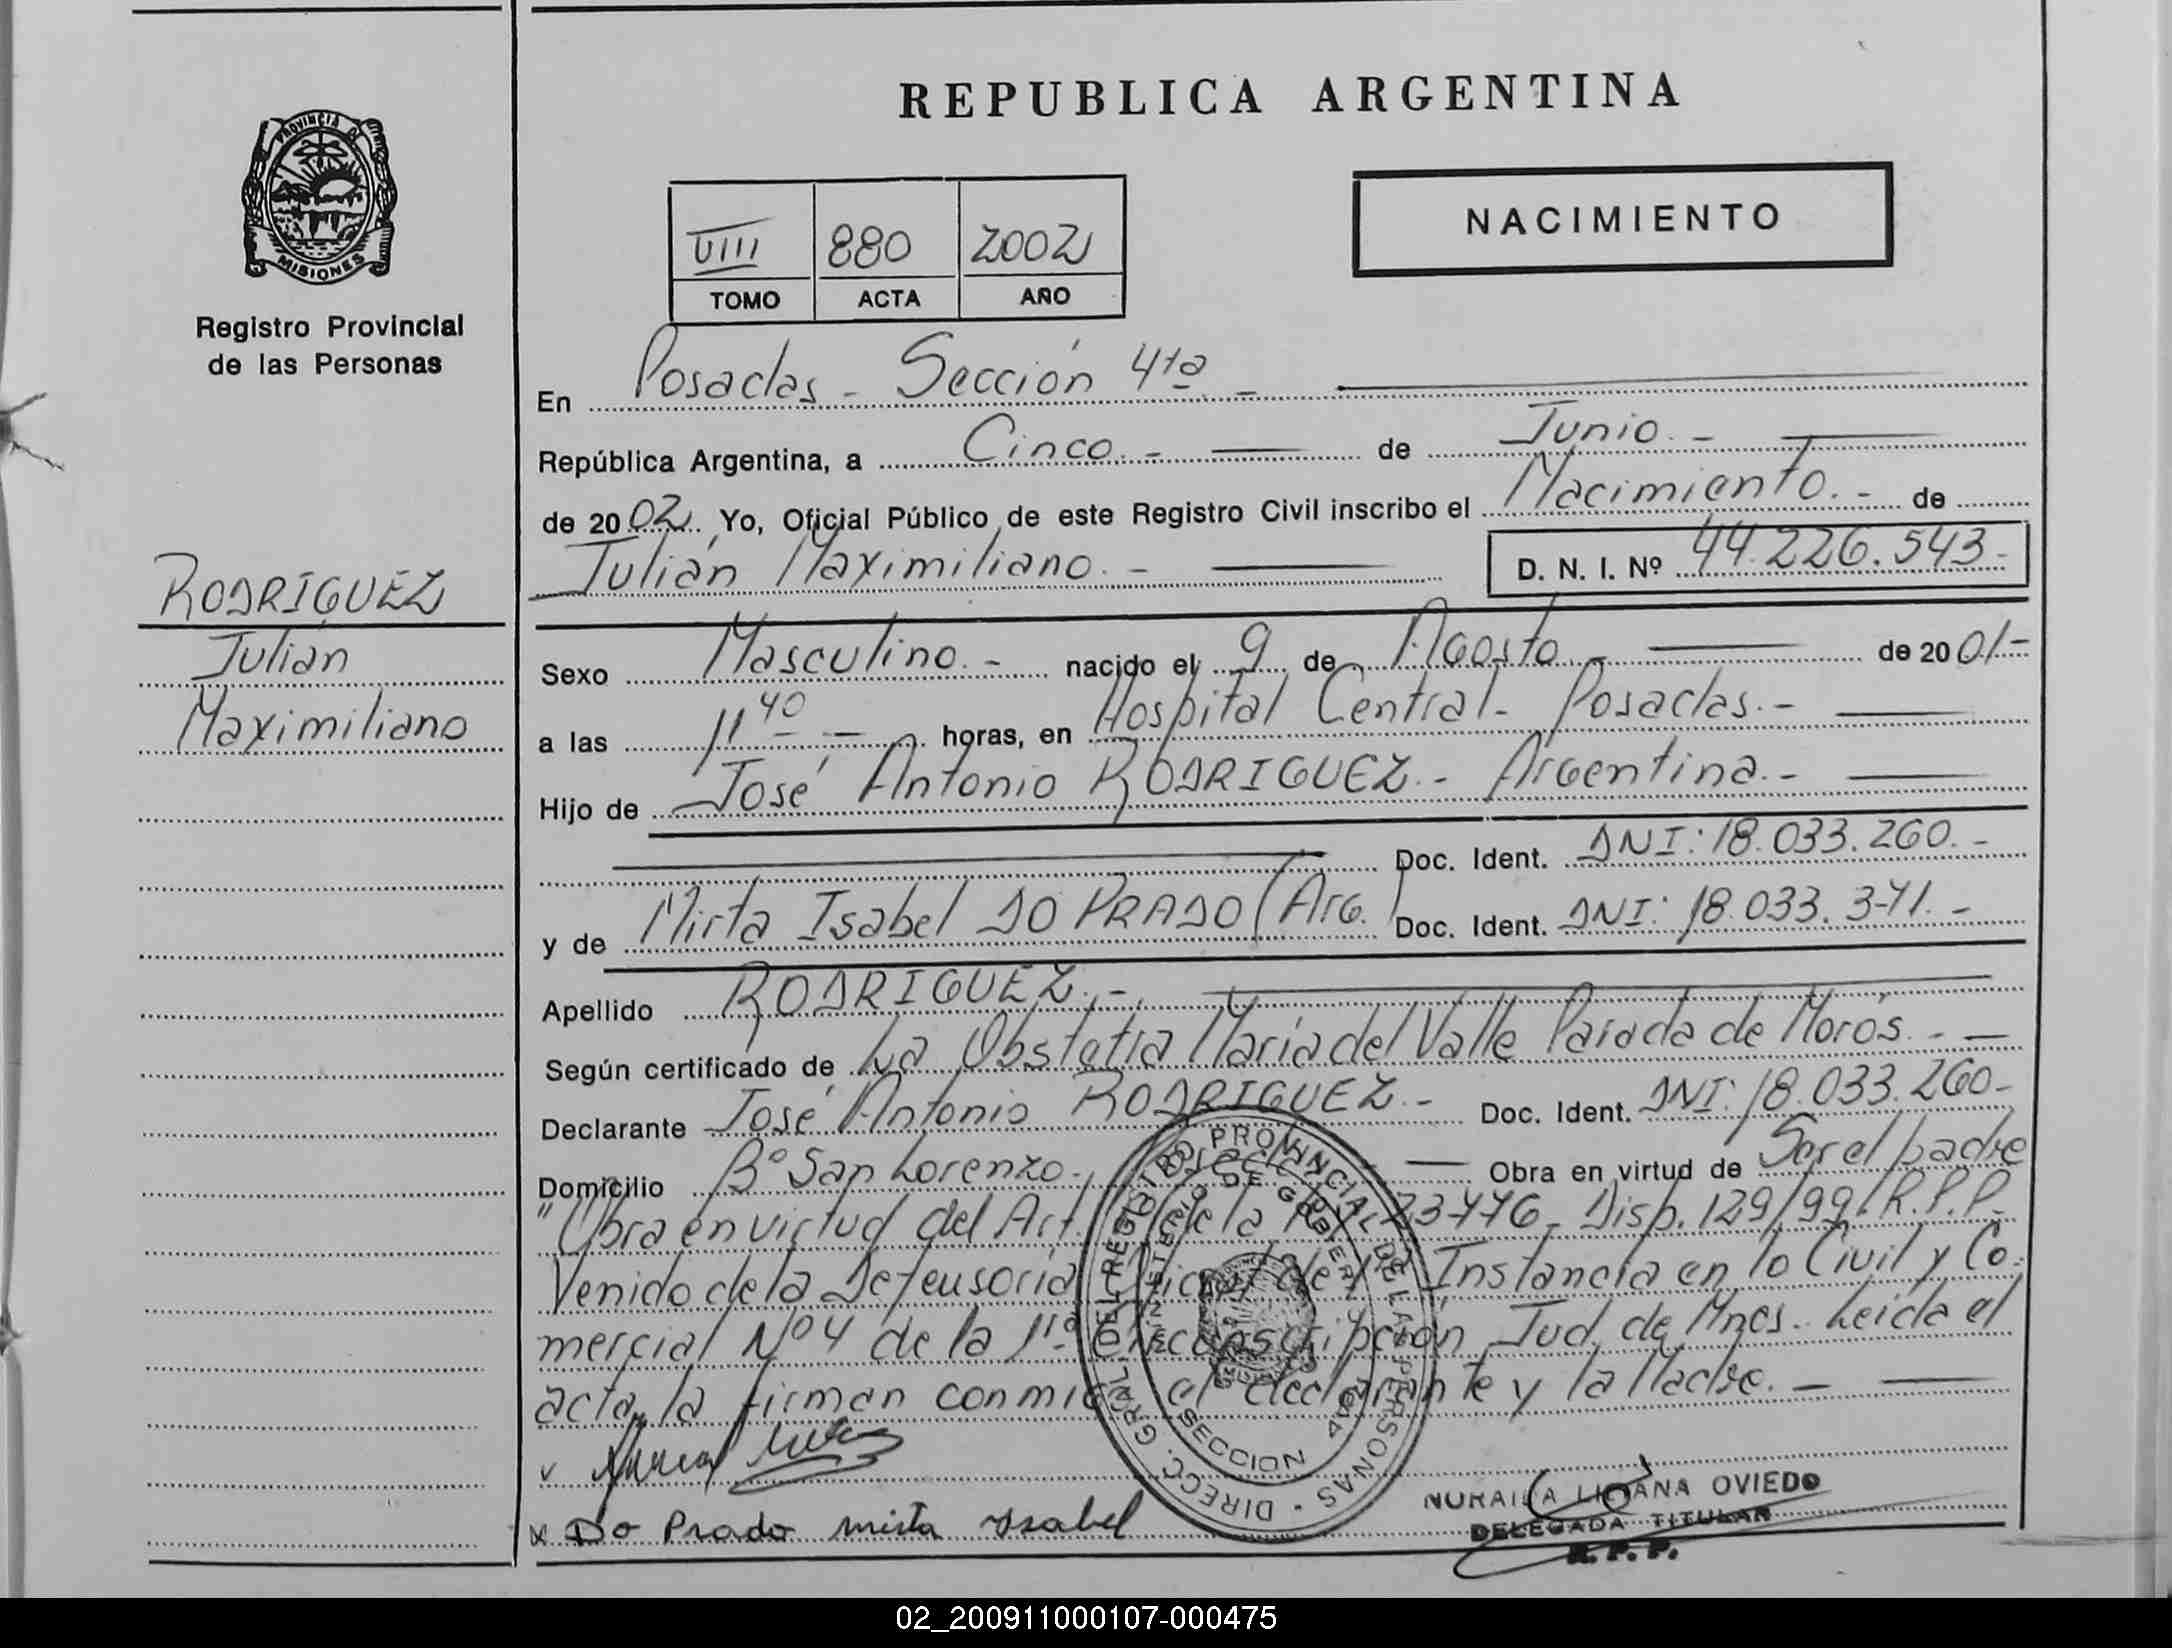 REPUBLICA ARGENTINA
PROVINCIA DE
MISIONES
Registro Provincial
de las Personas
VIII 880 2002
TOMO ACTA AÑO
NACIMIENTO
RODRÍGUEZ
Julián
Maximiliano
En Posadas - Sección 4ta -
República Argentina, a Cinco.- de Junio.-
de 2002. Yo, Oficial Público de este Registro Civil inscribo el Nacimiento.- de
Julián Maximiliano.- D. N. I. Nº 44.226.543.-
Sexo Masculino.- nacido el 9 de Agosto.- de 2001-
a las 11 40 - horas, en Hospital Central- Posadas.-
Hijo de José Antonio RODRIGUEZ.- Argentina.-
Doc. Ident. DNI: 18.033.260.-
y de Mirta Isabel DO PRADO (Arg.) Doc. Ident. DNI: 18.033.371.-
Apellido RODRIGUEZ.-
Según certificado de La Obstetra María del Valle Parada de Morós.-
Declarante José Antonio RODRIGUEZ.- Doc. Ident. DNI: 18.033.260-
Domicilio Bº San Lorenzo. Obra en virtud de Ser el padre
"Obra en virtud del Art. de la 23776- Disp. 129/99. R.P.P.
Venido de la Defensoría Oficial de Instancia en lo Civil y Co.
mercial Nº 4 de la 1ra Circunscripción Jud. de Mnes. Leída el
acta, la firman conmigo el declarante y la Madre.-
x Do Prado Mirta Ysabel
DIRECC. GRAL. DEL REGISTRO PROVINCIAL DE LAS PERSONAS
MINISTERIO DE GOBIERNO
SECCION 4ta
LILIANA OVIEDO
DELEGADA TITULAR
R. P. P.
02_200911000107-000475